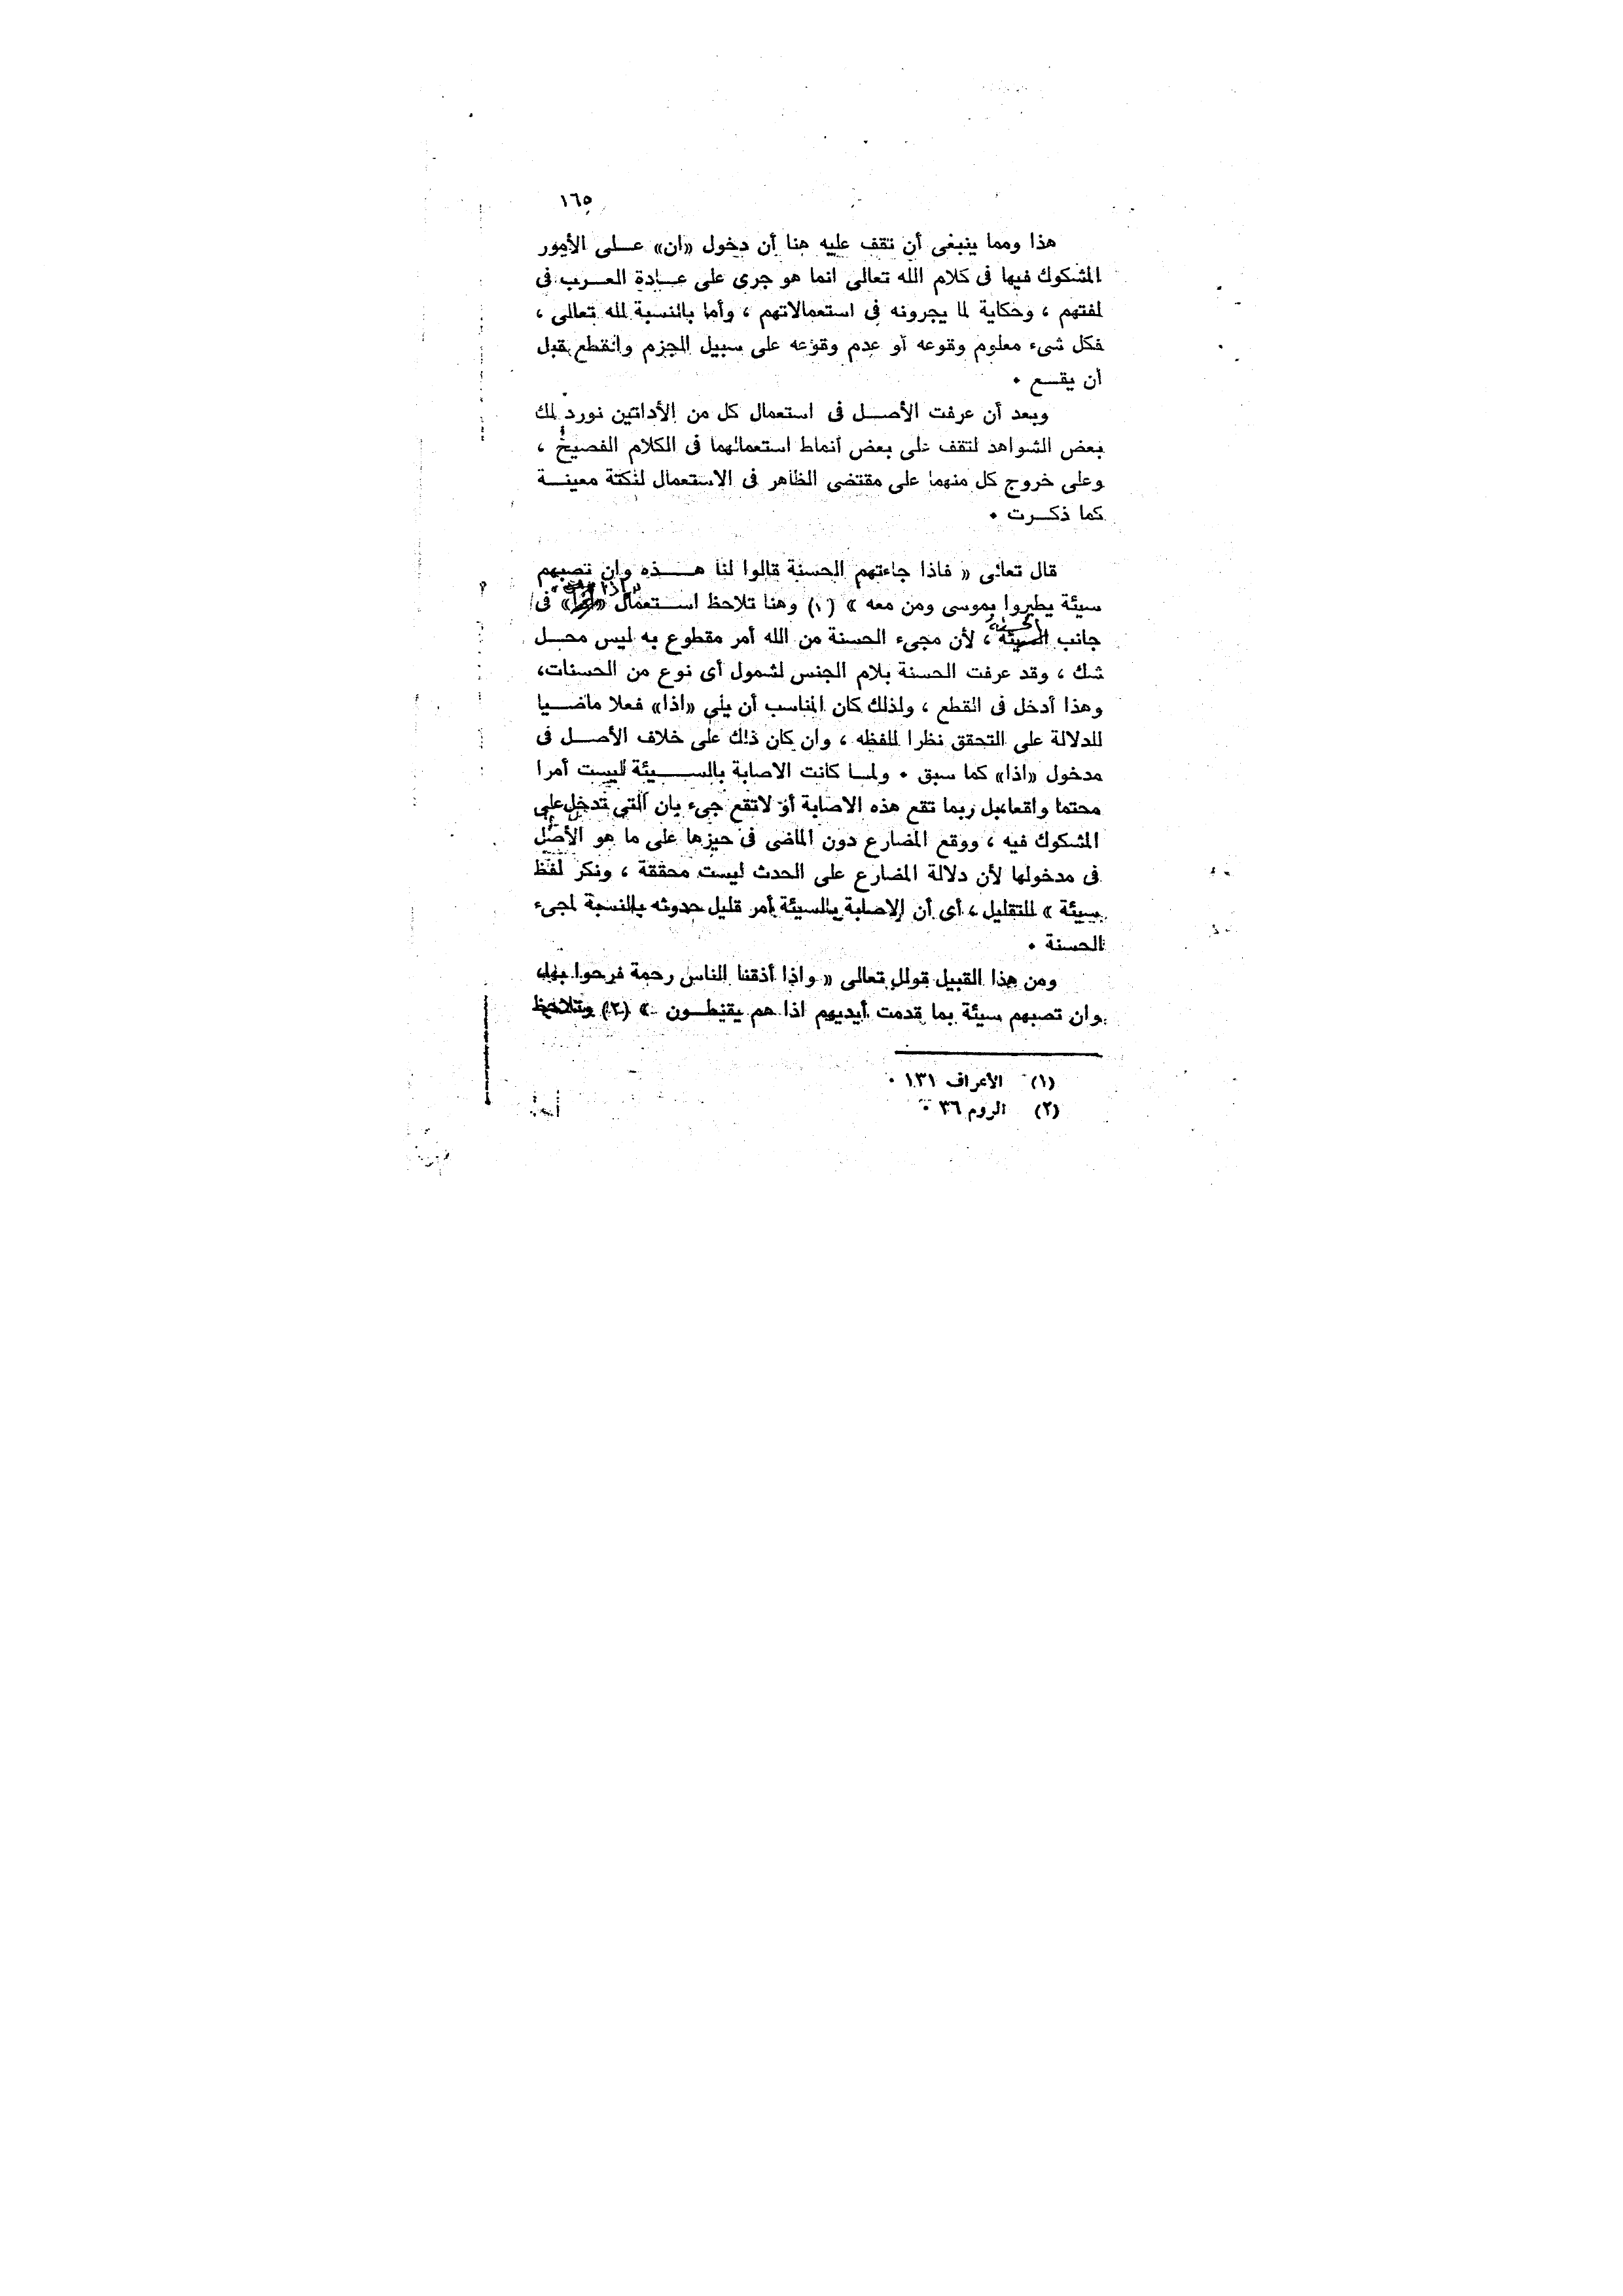 ١٦٥
هذا ومما ينبغى أن نقف عليه هنا أن دخول «ان» عـلى الأمور
المشكوك فيها فى كلام الله تعالى انما هو جرى على عـادة العـرب فى
لغتهم ، وحكاية لما يجرونه فى استعمالاتهم ، وأما بالنسبة لله تعالى ،
فكل شىء معلوم وقوعه أو عدم وقوعه على سبيل الجزم والقطع قبل
أن يقـع ٠
وبعد أن عرفت الأصـل فى استعمال كل من الأداتين نورد لك
بعض الشواهد لتقف على بعض أنماط استعمالهما فى الكلام الفصيح ،
وعلى خروج كل منهما على مقتضى الظاهر فى الاستعمال لنكتة معينـة
كما ذكـرت ٠
قال تعالى « فاذا جاءتهم الحسنة قالوا لنا هـذه وان تصبهم
سيئة يطيروا بموسى ومن معه » (١) وهنا تلاحظ استعمال «اذا» فى
جانب الحسنة ، لأن مجىء الحسنة من الله أمر مقطوع به ليس محـل
شك ، وقد عرفت الحسنة بلام الجنس لشمول أى نوع من الحسنات،
وهذا أدخل فى القطع ، ولذلك كان المناسب أن يلى «اذا» فعلا ماضـيا
للدلالة على التحقق نظرا للفظه ، وان كان ذلك على خلاف الأصـل فى
مدخول «اذا» كما سبق ٠ ولمـا كانت الاصابة بالسـيئة ليست أمرا
محتما واقعا بل ربما تقع هذه الاصابة أو لاتقع جىء بان التى تدخل على
المشكوك فيه ، ووقع المضارع دون الماضى فى حيزها على ما هو الأصل
فى مدخولها لأن دلالة المضارع على الحدث ليست محققة ، ونكر لفظ
سيئة » للتقليل ، أى أن الاصابة بالسيئة أمر قليل حدوثه بالنسبة لمجىء
الحسنة ٠
ومن هذا القبيل قوله تعالى « واذا أذقنا الناس رحمة فرحوا بها،
وان تصبهم سيئة بما قدمت أيديهم اذا هم يقنطـون » (٢) وتلاحظ
(١) الأعراف ١٣١ ٠
(٢) الروم ٣٦ ٠